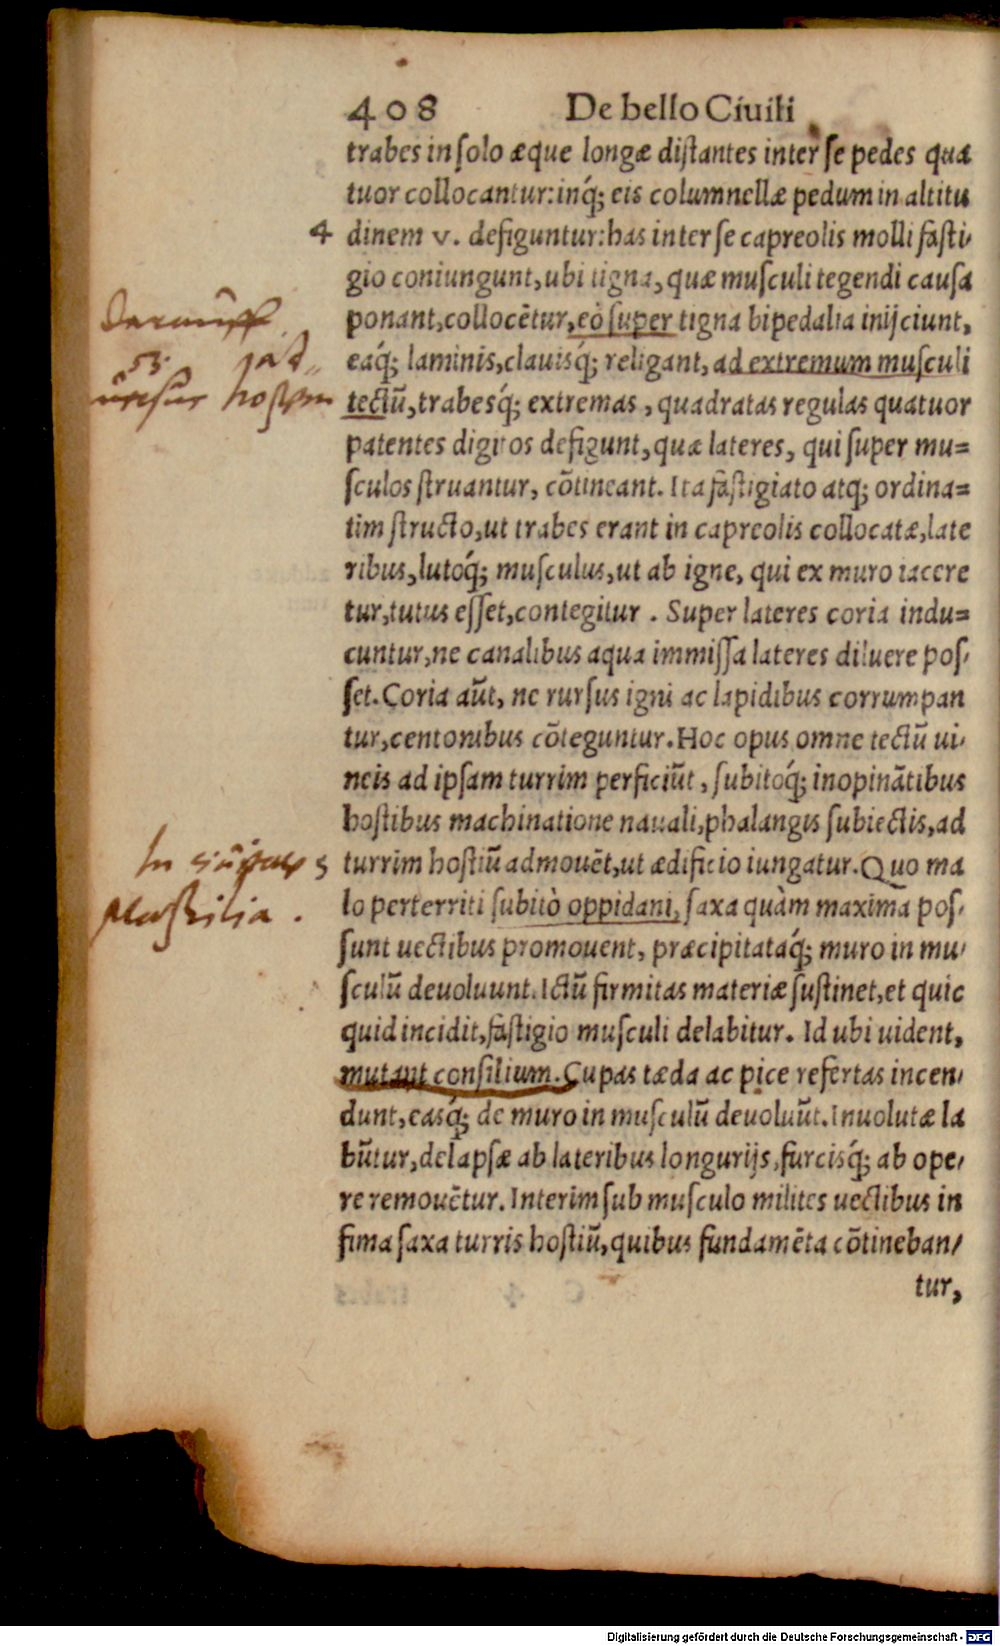 408 De bello Ciuili
trabes in ſolo æque longæ diſtantes inter ſe pedes qua
tuor collocantur:inq́; eis columnellæ pedum in altitu
4 dinem v. defiguntur:has inter ſe capreolis molli faſti-
gio coniungunt,ubi tigna, quæ muſculi tegendi cauſa
ponant,collocẽtur,eò ſuper tigna bipedalia inijciunt,
eaq́; laminis,clauisq́; religant, ad extremum muſculi
tectũ,trabesq́; extremas, quadratas regulas quatuor
patentes digitos defigunt,quæ lateres, qui ſuper mu=
ſculos ſtruantur, cõtineant. Ita faſtigiato atq; ordina=
tim ſtructo,ut trabes erant in capreolis collocatæ,late
ribus,lutoq́; muſculus,ut ab igne, qui ex muro iacere
tur,tutus eſſet,contegitur. Super lateres coria indu=
cuntur,ne canalibus aqua immiſſa lateres diluere poſ-
ſet.Coria aũt, ne rurſus igni ac lapidibus corrumpan
tur,centonibus cõteguntur.Hoc opus omne tectũ ui-
neis ad ipſam turrim perficiũt, ſubitoq́; inopinãtibus
hoſtibus machinatione nauali,phalangis ſubiectis,ad
5 turrim hoſtiũ admouẽt,ut ædificio iungatur.Quo ma
lo perterriti ſubitò oppidani, ſaxa quàm maxima poſ-
ſunt uectibus promouent, præcipitataq́; muro in mu-
ſculũ deuoluunt.Ictũ firmitas materiæ ſuſtinet,et quic
quid incidit,faſtigio muſculi delabitur. Id ubi uident,
mutant conſilium.Cupas tæda ac pice refertas incen-
dunt,easq́; de muro in muſculũ deuoluũt.Inuolutæ la
bũtur,delapſæ ab lateribus longurijs,furcisq́; ab ope-
re remouẽtur.Interim ſub muſculo milites uectibus in
fima ſaxa turris hoſtiũ,quibus fundamẽta cõtineban-
tur,
Digitalisierung gefördert durch die Deutsche Forschungsgemeinschaft - DFG